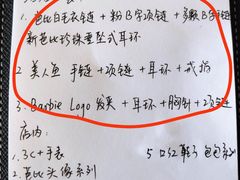 1. 芭比白毛衣链 + 粉B字项链 + 多颗B字链
新芭比珍珠坠式耳环
2. 美人鱼 手链 + 项链 + 耳环 + 戒指
3. Barbie Logo 发夹 + 耳环 + 胸针 + 项链
店内:
1. 3C + 手表
5 口红
包包系列
2. 芭比头像系列